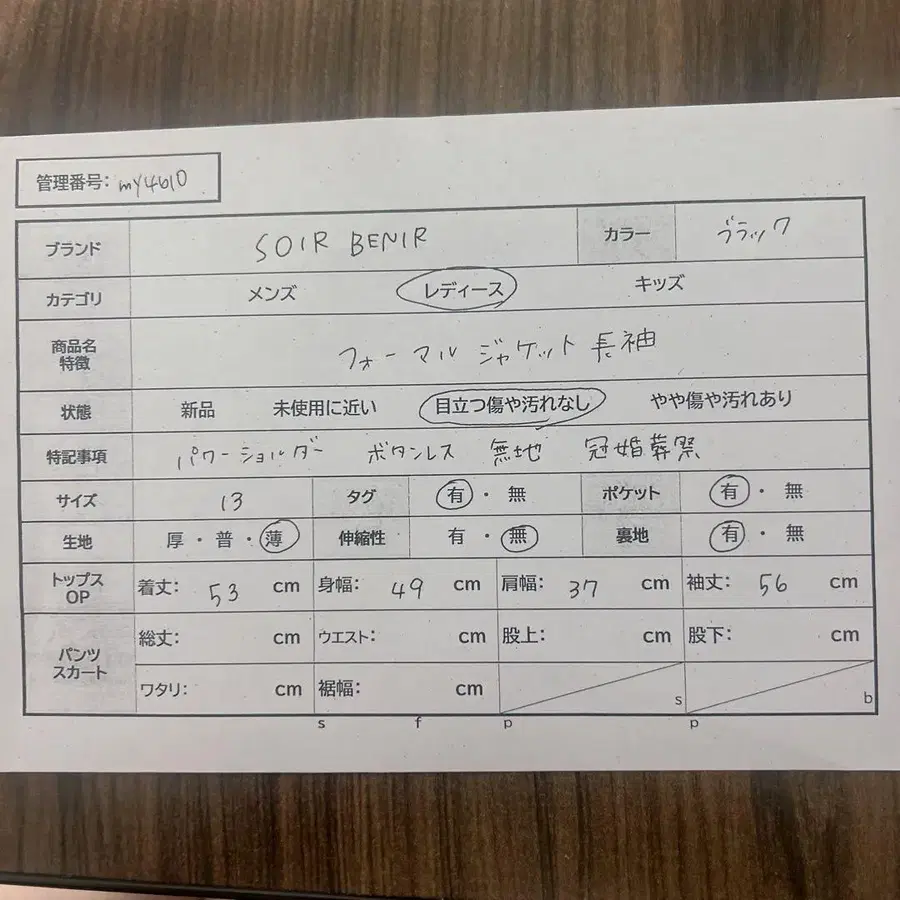 管理番号: my4610
ブランド SOIR BENIR カラー ブラック
カテゴリ メンズ レディース キッズ
商品名 特徴 フォーマル ジャケット 長袖
状態 新品 未使用に近い 目立つ傷や汚れなし やや傷や汚れあり
特記事項 パワーショルダー ボタンレス 無地 冠婚葬祭
サイズ 13 タグ 有・無 ポケット 有・無
生地 厚・普・薄 伸縮性 有・無 裏地 有・無
トップス OP 着丈: 53 cm 身幅: 49 cm 肩幅: 37 cm 袖丈: 56 cm
パンツ スカート 総丈: cm ウエスト: cm 股上: cm 股下: cm
ワタリ: cm 裾幅: cm s b
s f p p